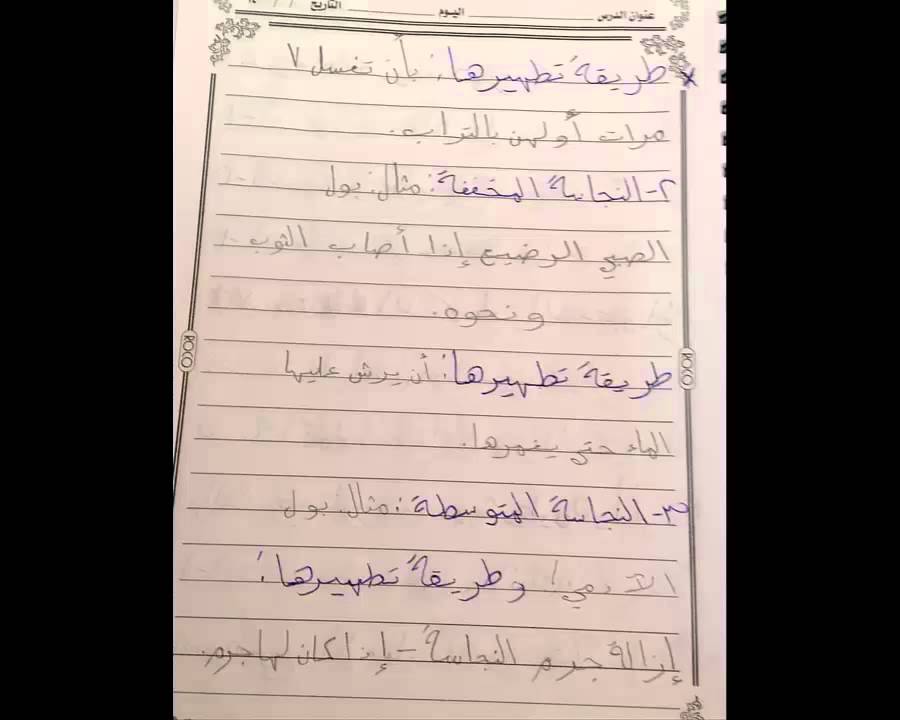 عنوان الدرس اليوم التاريخ / /
* طريقة تطهيرها: بأن تغسل ٧
مرات أولهن بالتراب.
٢- النجاسة المخففة: مثال: بول
الصبي الرضيع إذا أصاب الثوب
ونحوه.
KOCO KOCO
طريقة تطهيرها: أن يرش عليها
الماء حتى يغمرها.
٣- النجاسة المتوسطة: مثال: بول
الآدمي! وطريقة تطهيرها:
إزالة جرم النجاسة - إذا كان لها جرم.